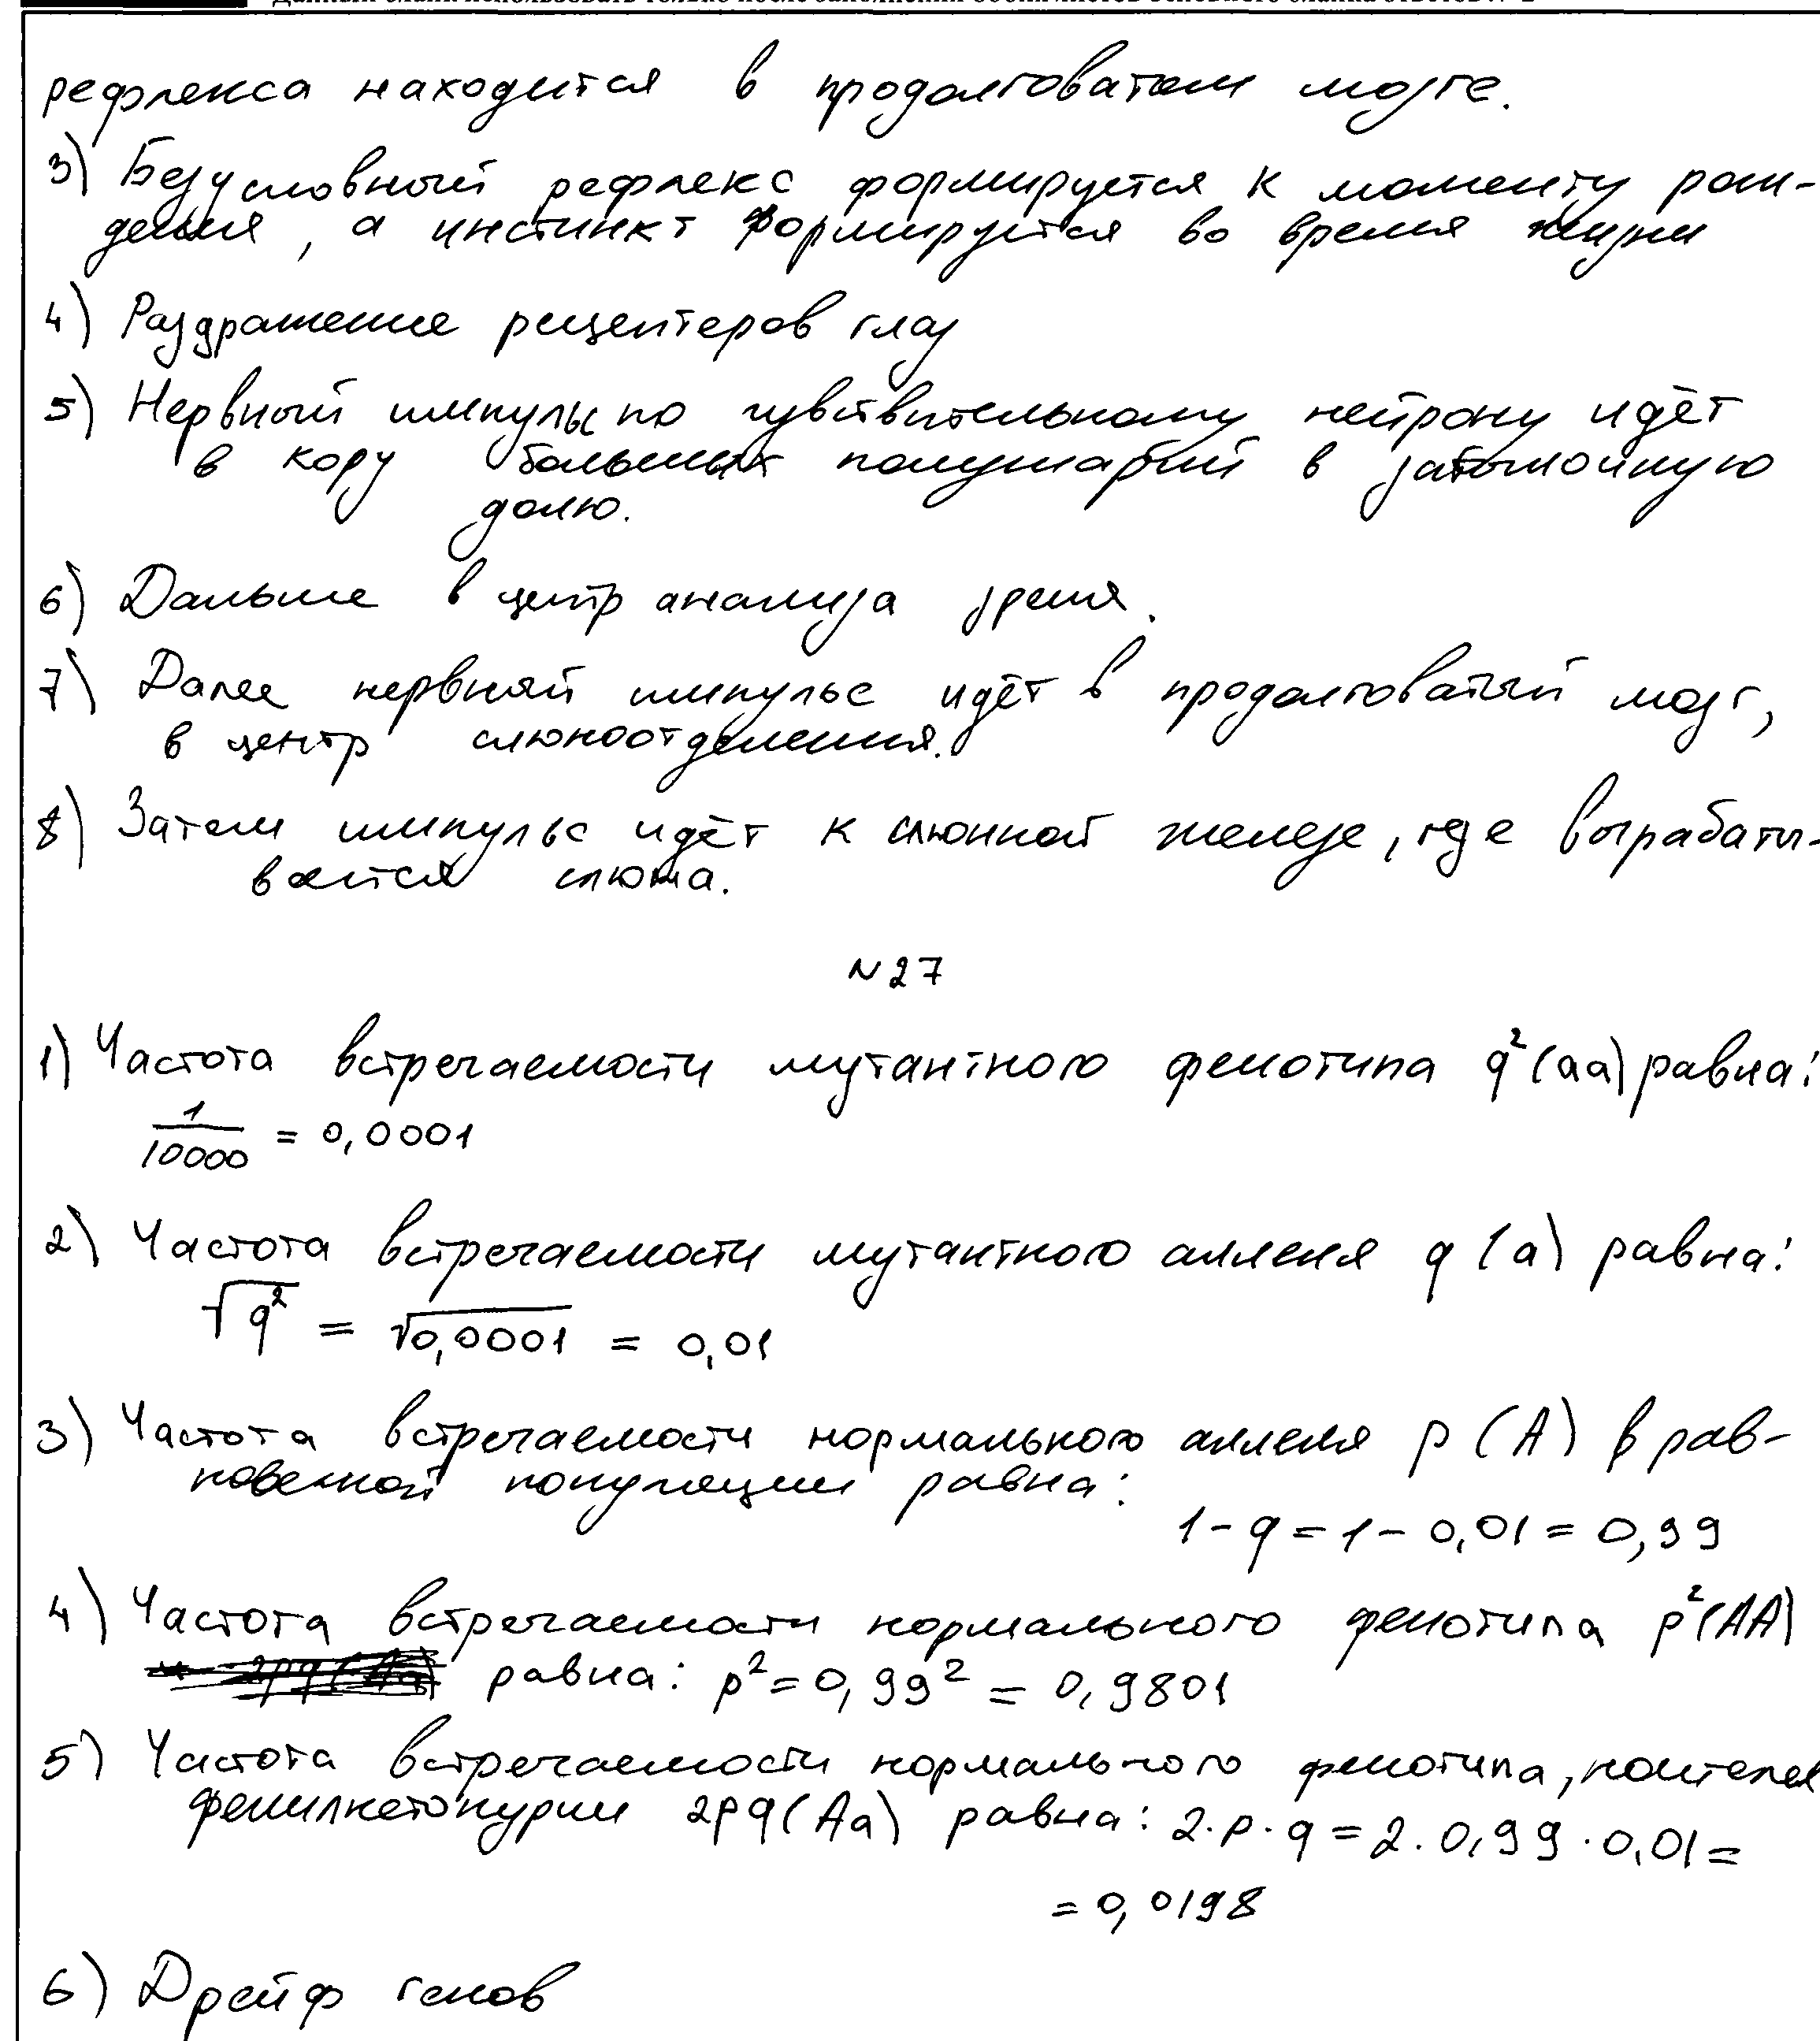 рефлекса находится в продолговатом мозге.
3) Безусловный рефлекс формируется к моменту рож-
дения, а инстинкт формируется во время жизни
4) Раздражение рецептеров глаз
5) Нервный импульс по чувствительному нейрону идёт
в кору больших полушарий в затылочную
долю.
6) Дальше в центр анализа зрения.
7) Далее нервный импульс идёт в продолговатый мозг,
в центр слюноотделения.
8) Затем импульс идёт к слюнной железе, где вырабаты-
вается слюна.
N27
1) Частота встречаемости мутантного фенотипа q²(aa) равна:
1/10000 = 0,0001
2) Частота встречаемости мутантного аллеля q (a) равна:
√q² = √0,0001 = 0,01
3) Частота встречаемости нормального аллеля p (A) в рав-
новесной популяции равна:
1 - q = 1 - 0,01 = 0,99
4) Частота встречаемости нормального фенотипа p²(AA)
равна: p² = 0,99² = 0,9801
5) Частота встречаемости нормального фенотипа, носителей
фенилкетонурии 2pq(Aa) равна: 2·p·q = 2·0,99·0,01 =
= 0,0198
6) Дрейф генов